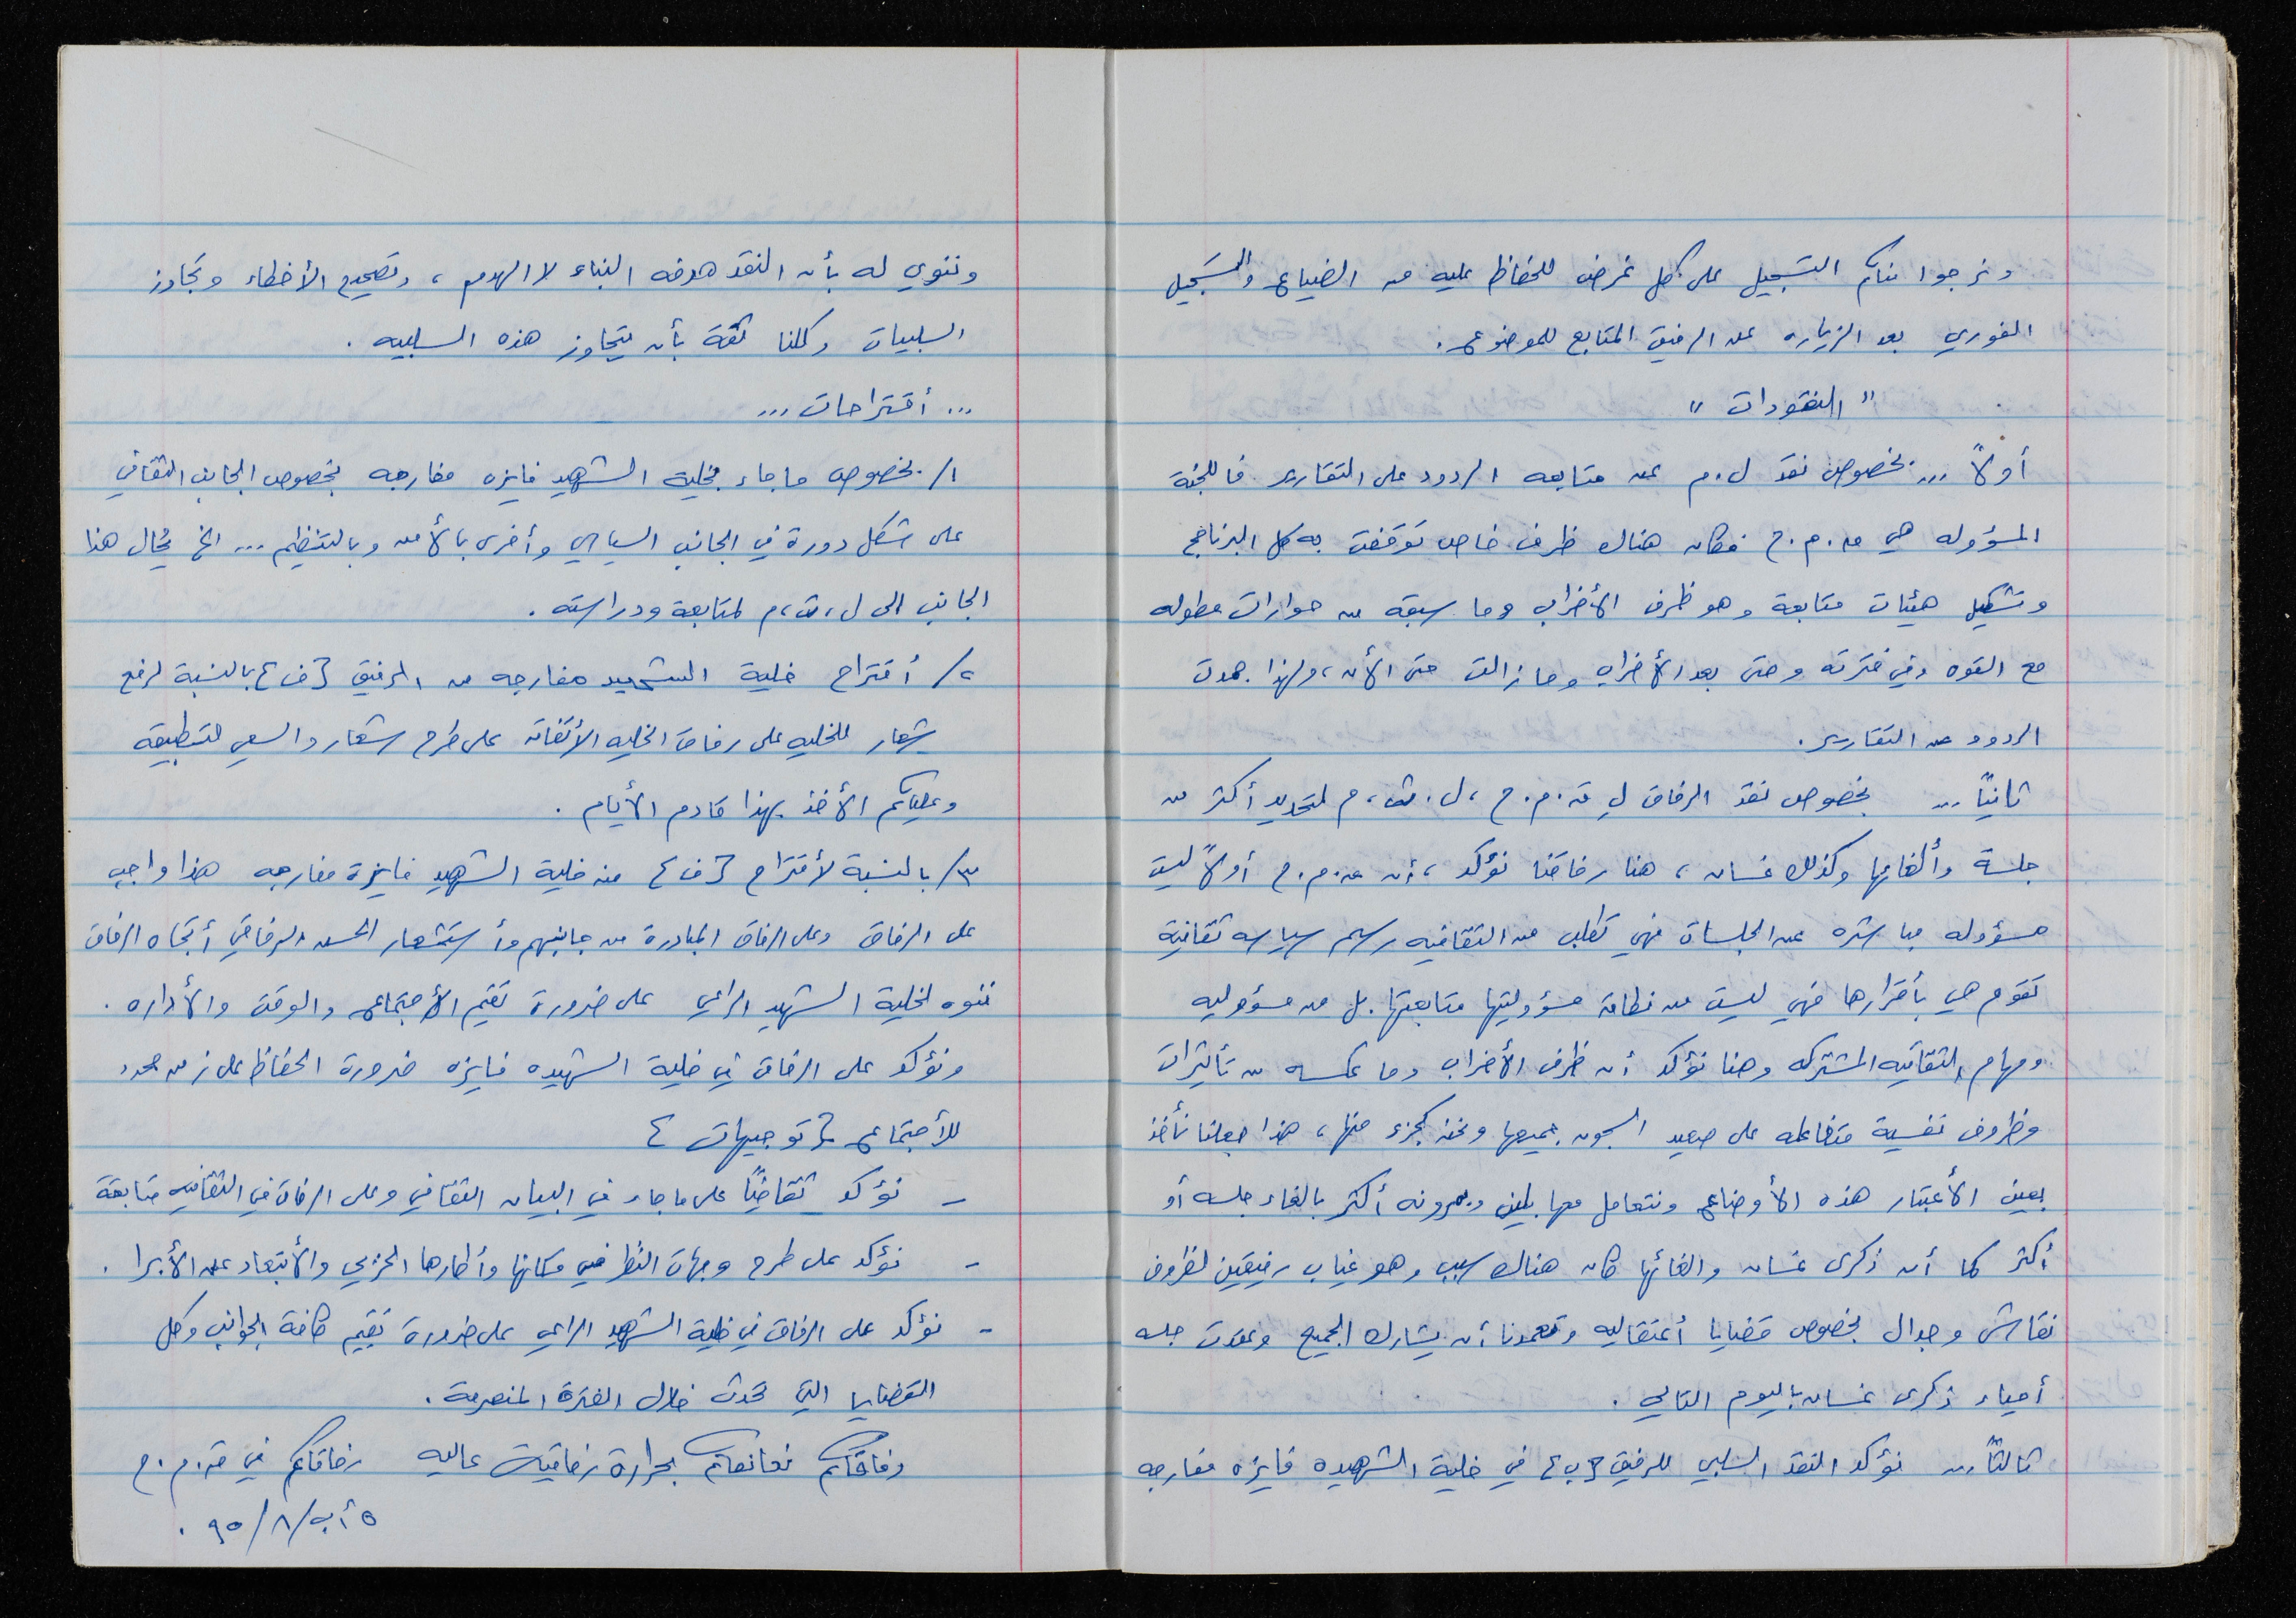 ونرجوا منكم التسجيل على كل غرض للحفاظ عليه من الضياع والتسجيل
الفوري بعد الزياره عند الرفيق المتابع للموضوع.
" النقودات "
أولاً ... بخصوص نقد ل.م عن متابعه الردود على التقارير فاللجنة
المسؤوله هي ق.م.ح فكان هناك ظرف خاص توقفت به كل البرنامج
وتشكيل هيئات متابعة وهو ظرف الأضراب وما سبقه من حوارات مطوله
مع القوه وفي فترته وحتى بعد الأضراب وما زالت حتى الأن، ولهذا جمدت
الردود عن التقارير.
ثانياً ... بخصوص نقد الرفاق ل ق.م.ح ، ل.ث.م لتجديد أكثر من
جلسة وألغاءها وكذلك غسان ، هنا رفاقنا نؤكد ، أن ق.م.ح أولاً ليست
مسؤوله مباشره عن الجلسات فهي تطلب من الثقافيه رسم سياسه ثقافية
تقوم هي بأقرارها فهي ليست من نطاق مسؤوليتها متابعتها بل من مسؤوليه
ومهام الثقافيه المشتركه وهنا نؤكد أن ظرف الأضراب وما عكسه من تأثيرات
وظروف نفسية متفاعله على صعيد السجون جميعها ونحن كجزء منها ، هذا جعلنا نأخذ
بعين الأعتبار هذه الأوضاع ونتعامل معها بلين وبمرونه أكثر بالغاء جلسه أو
أكثر كما أن ذكرى غسان والغائها كان هناك سبب وهو غياب رفيقين لظروف
نقاش وجدال بخصوص قضايا أعتقاليه وتعمدنا أن يشارك الجميع وعقدت جلسه
أحياء ذكرى غسان باليوم التالي .
ثالثاً ... نؤكد النقد السلبي للرفيق { ب } في خلية الشهيده فايزه مفارجه
وننوي له بأن النقد هدفه البناء لا الهدم ، وتصحيح الأخطاء وتجاوز
السلبيات وكلنا ثقة بأن يتجاوز هذه السلبيه .
... أقتراحات ...
١/ بخصوص ما جاء بخلية الشهيد فايزه مفارجه بخصوص الجانب الثقافي
على شكل دورة في الجانب السياسي وأخرى بالأمن وبالتنظيم ... الخ يحال هذا
الجانب الى ل ، ث ، م لمتابعة ودراسته .
٢/ أقتراح خلية الشهيد مفارجه من الرفيق { ف } بالنسبة لرفع
شعار للخليه على رفاق الخليه الأتفاق على طرح شعار والسعي لتطبيقه
وعليكم الأخذ بهذا قادم الأيام .
٣/ بالنسبة لأقتراح { ف } من خلية الشهيد فايزة مفارجه هذا واجب
على الرفاق وعلى الرفاق المبادرة من جانبهم وأستشعار الحس الرفاقي أتجاه الرفاق
ننوه لخلية الشهيد الراعي على ضرورة تقيم الأجتماع والوقت والأداره .
ونؤكد على الرفاق في خلية الشهيده فايزه ضرورة الحفاظ على زمن محدد
للأجتماع { توجيهات }
- نؤكد ثقافيًا على ما جاء في البيان الثقافي وعلى الرفاق في الثقافيه متابعة
- نؤكد على طرح وجهات النظر في مكانها وأطارها الحزبي والأبتعاد عن الأبرا .
- نؤكد على الرفاق في خلية الشهيد الراعي على ضرورة تقيم كافة الجوانب وكل
القضايا التي تحدث خلال الفترة المنصرمة .
رفاقكم نعانقكم بحرارة رفاقية عاليه رفاقكم في ق.م.ح
٥ أب/٨/٩٥ .